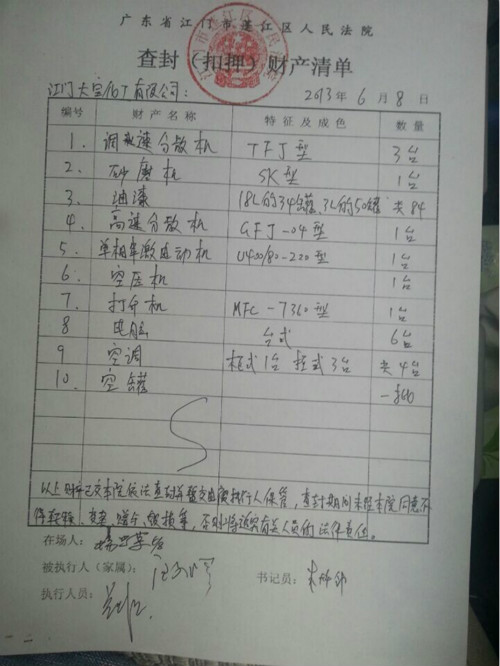 广东省江门市蓬江区人民法院
查封(扣押)财产清单
江门 有限公司: 2013年6月8日
编号 财产名称 特征及成色 数量
1. 调高速分散机 TFJ型 3台
2. 砂磨机 SK型 1台
3. 油漆 18L的34罐、3L的50罐 共84
4. 高速分散机 GFJ-04型 1台
5. 单相串激电动机 U400/80-220型 1台
6. 空压机 1台
7. 打印机 MFC-7360型 1台
8 电脑 台式 6台
9 空调 柜式1台 挂式3台 共4台
10. 空罐 一批
以上财产已交本院依法查封并暂交由被执行人保管,查封期间未经本院同意不
得转移、变卖、赠与、毁损等,否则将追究有关人员的法律责任。
在场人:
被执行人(家属): 书记员:
执行人员: